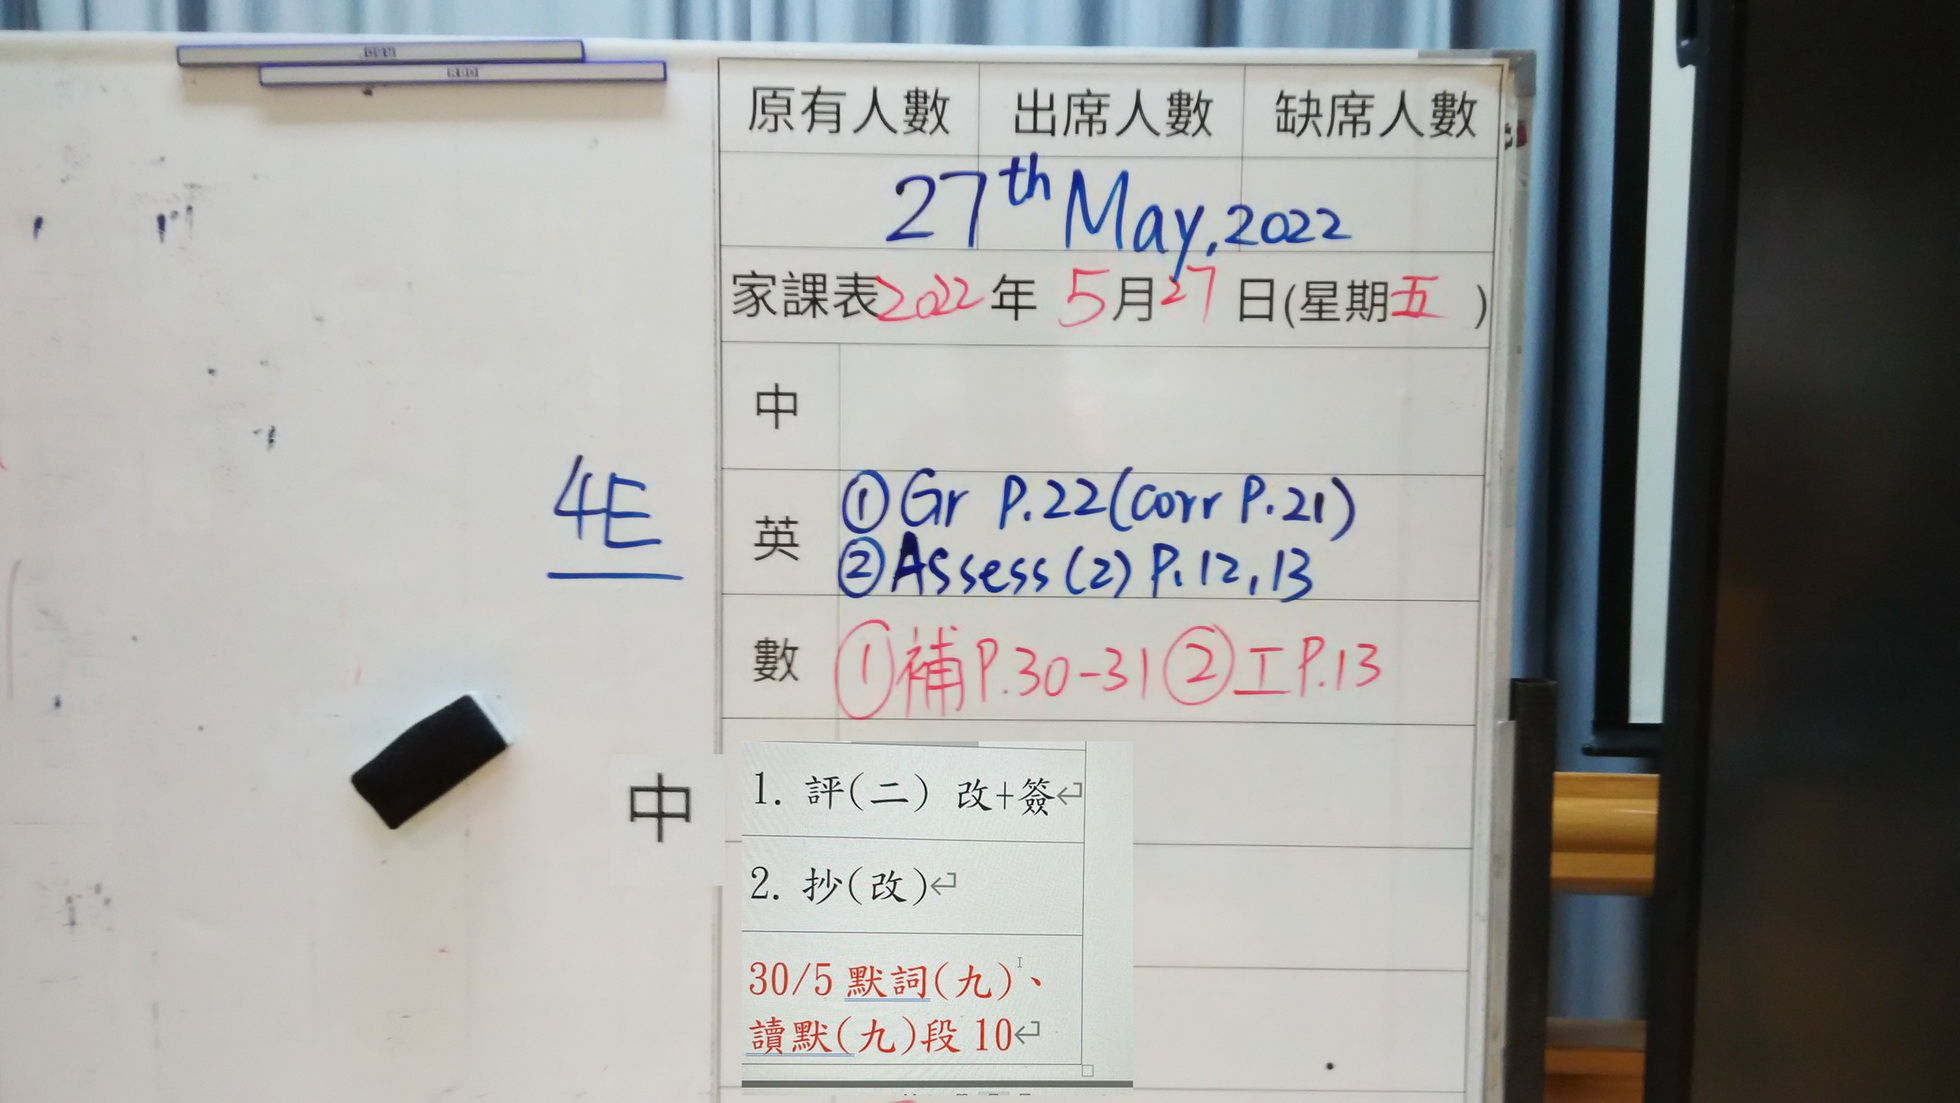 原有人數 出席人數 缺席人數
27th May, 2022
家課表2022年 5月27日(星期五 )
中
4E
英
①Gr P.22(corr P.21)
②Assess(2) P.12,13
數 ①補P.30-31 ②工P.13
中
1. 評(二) 改+簽
2. 抄(改)
30/5 默詞(九)、
讀默(九)段 10